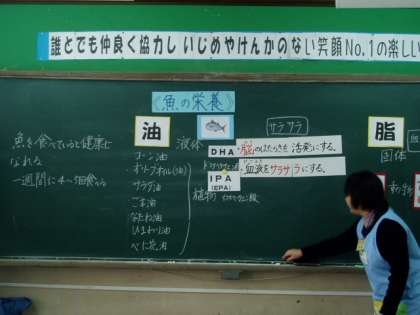 誰とでも仲良く協力し いじめやけんかのない笑顔No.1の楽しい
《魚の栄養》
魚を食べていると健康に
なれる
一週間に4〜5回食べる
油
液体
コーン油
オリーブオイル(油)
サラダ油
ごま油
なたね油
ひまわり油
べに花油
植物
サラサラ
DHA
・脳のはたらきを 活発にする。
IPA
(EPA)
・血液をサラサラにする。
脂
固体
動物